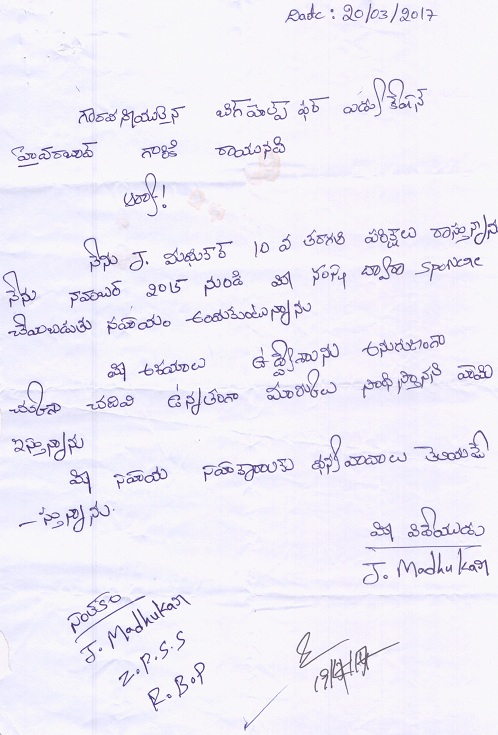 Date : 20/03/2017
గౌరవనీయులైన బిగ్ హెల్ప్ ఫర్ ఎడ్యుకేషన్
హైదరాబాద్ గారికి రాయునది
ఆర్యా!
నేను J. మధుకర్ 10 వ తరగతి పరీక్షలు రాస్తున్నాను
నేను నవంబర్ 2015 నుండి మీ సంస్థ ద్వారా
చేయబడుతు సహాయం అందుకుంటున్నాను
మీ ఆశయాలు ఉద్దేశాలను అనుగుణంగా
చదివి ఉన్నతంగా మార్కులు సాధిస్తానని హామి
ఇస్తున్నాను
మీ సహాయ సహకారాలకు ధన్యవాదాలు తెలియజే
-స్తున్నాను.
మీ విధేయుడు
J. Madhukar
సంతకం
J. Madhukar
Z.P.S.S
R.B.P